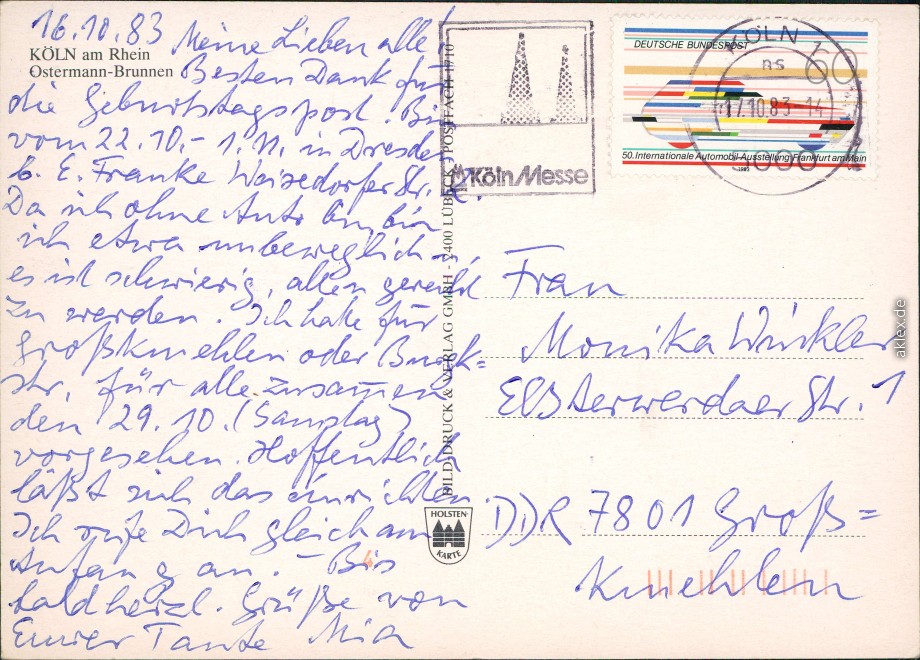 16.10.83 Meine Lieben alle!
KÖLN am Rhein
Ostermann-Brunnen
Besten Dank für
die Geburtstagspost. Bin
vom 22.10.- 1.11. in Dresden
b. E. Franke Weixdorfer Str.
Da ich ohne Auto bin, bin
ich etwa unbeweglich -
es ist schwierig, allen gerecht
zu werden. Ich habe für
Großkmehlen oder
Str. für alle zusammen
den 29.10. (Samstag)
vorgesehen. Hoffentlich
läßt sich das einrichten.
Ich rufe Dich gleich am
Anfang an. - Bis
bald herzl. Grüße von
Eurer Tante Mia
BILD DRUCK & VERLAG GMBH - 2400 LÜBECK 1 POSTFACH 1710
HOLSTEN-
KARTE
KölnMesse
DEUTSCHE BUNDESPOST
60
50. Internationale Automobil-Ausstellung Frankfurt am Main
KÖLN 1
ns
17.10.83-14
5000
Frau
Monika Winkler
Elsterwerdaer Str. 1
DDR 7801 Groß=
kmehlen
4
aklex.de